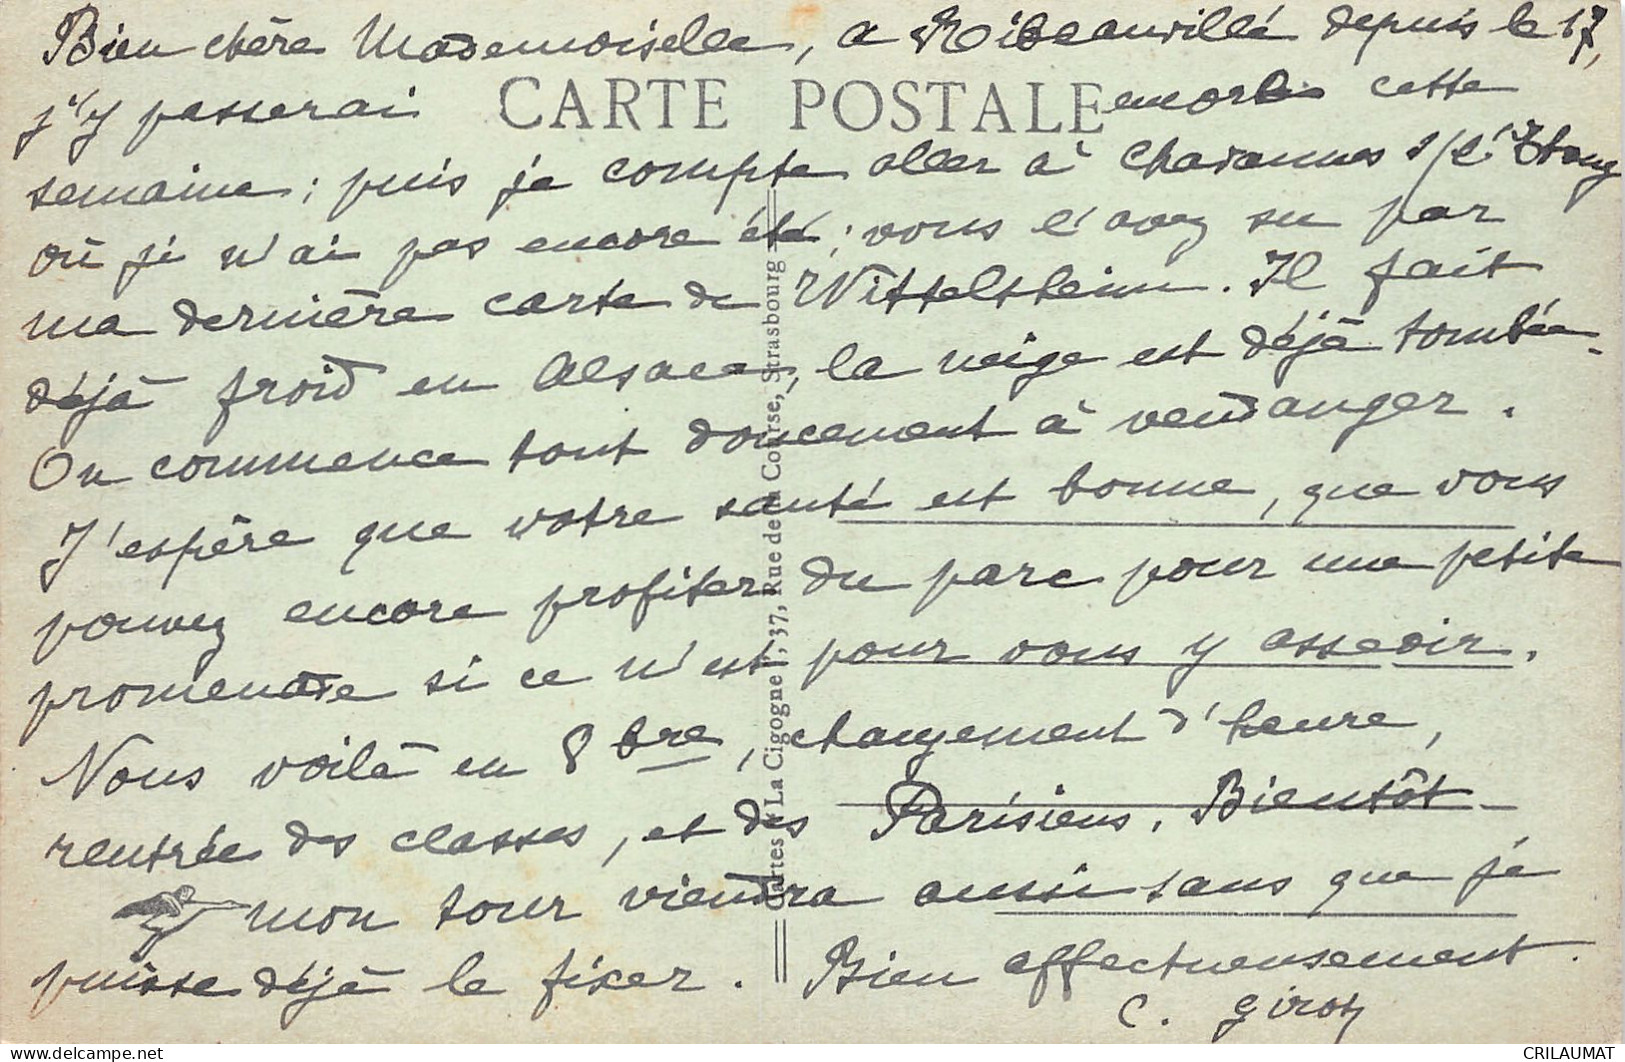 Bien chère Mademoiselle, a Ribeauvillé depuis le 17,
j'y passerai encore cette
CARTE POSTALE
semaine; puis je compte aller à Chavannes s/l'Etang
où je n'ai pas encore été; vous l'avez su par
ma dernière carte de Wittelsheim. Il fait
déjà froid en Alsace, la neige est déjà tombée.
On commence tout doucement à vendanger.
J'espère que votre santé est bonne, que vous
pouvez encore profiter du parc pour une petite
promenade si ce n'est pour vous y asseoir.
Nous voilà en 8bre, changement d'heure,
rentrée des classes, et des Parisiens. Bientôt
mon tour viendra aussi sans que je
puisse déjà le fixer. Bien affectueusement.
C. Giroy
Cartes "La Cigogne", 37, Rue de la Course, Strasbourg
delcampe.net
CRILAUMAT